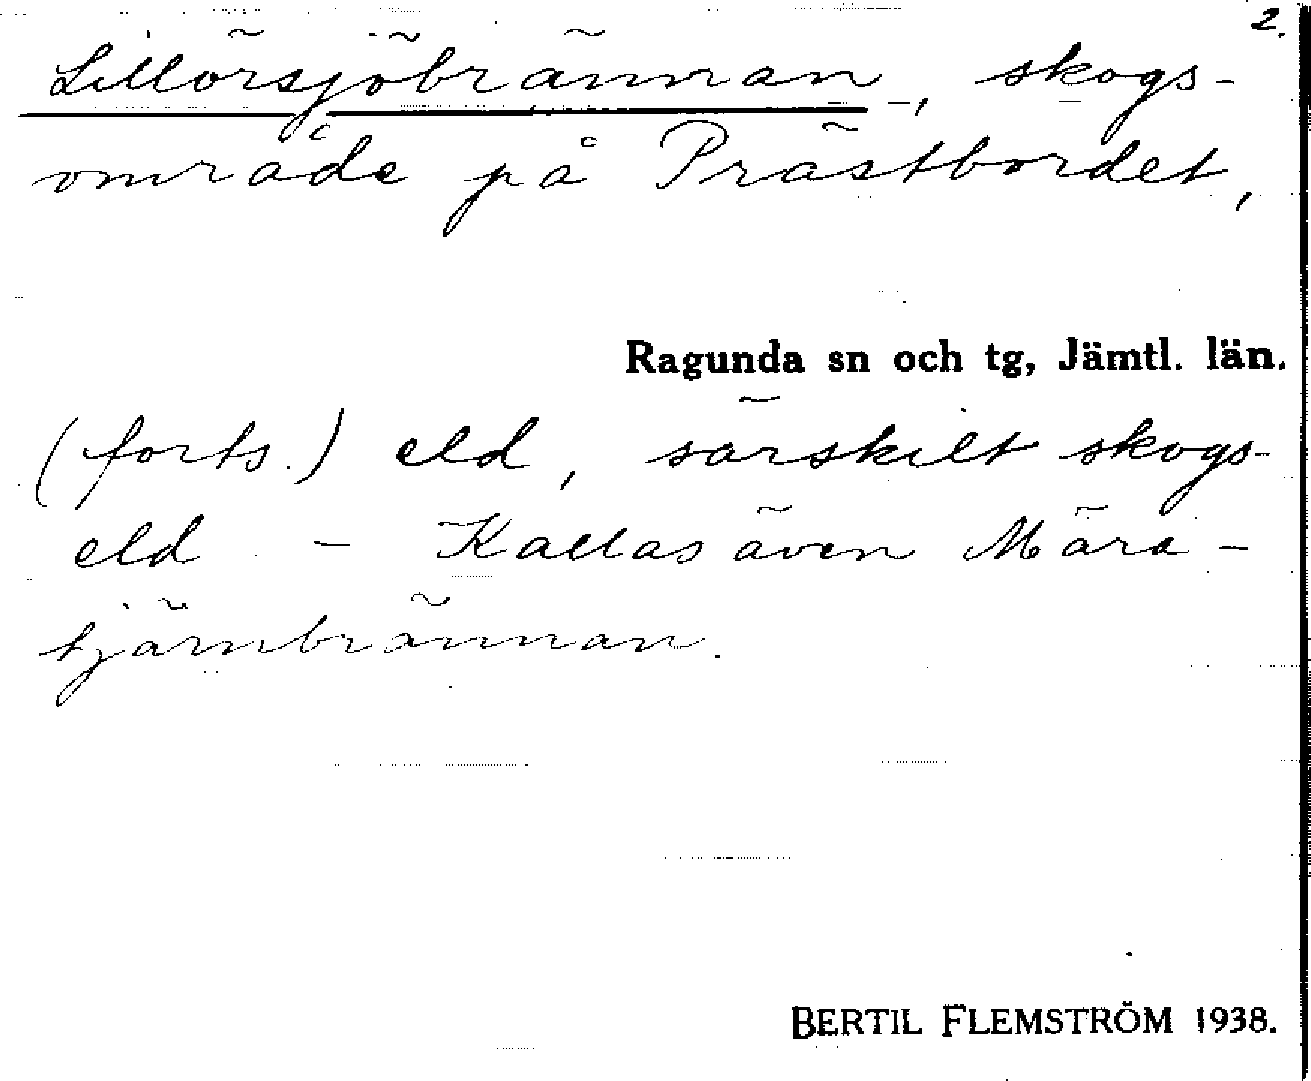 2.
Lillörsjöbrännan, skogs-
område på Prästbordet,
Ragunda sn och tg, Jämtl. län.
(forts.) eld, särskilt skogs-
eld - Kallas även Mära-
tjärnbrännan.
BERTIL FLEMSTRÖM 1938.